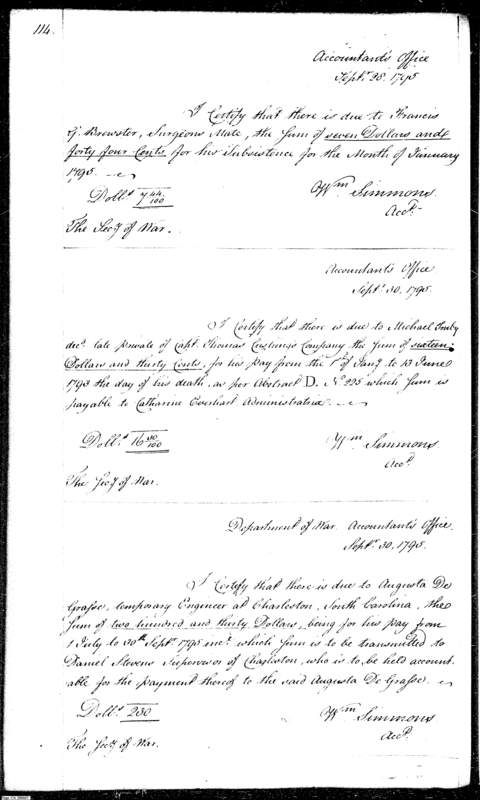 114.
Accountant's Office
Sept.r 28. 1795
I Certify that there is due to Francis
G. Brewster, Surgeons Mate, the Sum of seven Dollars and
forty four Cents, for his Subsistence for the Month of January
1795.
Doll.s 7 44/100
Wm Simmons.
Acct.
The Secy of War.
Accountants Office
Sept. 30. 1795.
I Certify that there is due to Michael
decd. late private of Capt. Thomas Company the Sum of sixteen
Dollars and thirty Cents, for his pay from the 1st of Jany to 13 June
1793 the day of his death, as per Abstract D. No 225 which Sum is
payable to Catharine Everhart Administratrix.
Doll.s 16 30/100
Wm Simmons
Acct.
The Secy of War.
Department of War Accountants Office.
Sept. 30. 1795.
I Certify that there is due to Augusta De
Grasse, temporary Engineer at Charleston, South Carolina, the
Sum of two hundred and thirty Dollars, being for his pay from
1 July to 30th Sept. 1795 incs. which Sum is to be transmitted to
Daniel Stevens Supervisor of Charleston, who is to be held account-
able for the payment thereof to the said Augusta De Grasse.
Doll.s 230
Wm Simmons
Acct.
The Secy of War.